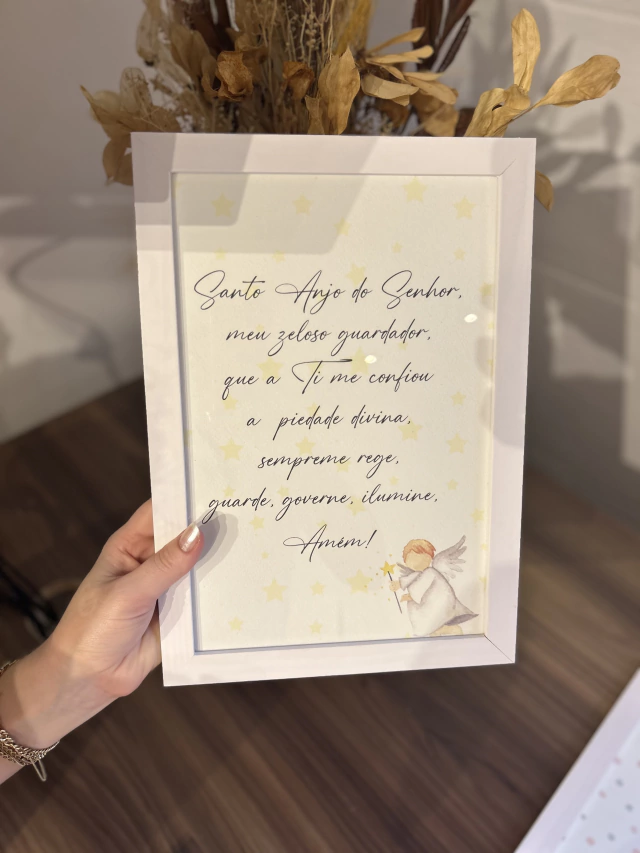 Santo Anjo do Senhor,
meu zeloso guardador,
que a Ti me confiou
a piedade divina,
sempreme rege,
guarde, governe, ilumine,
Amém!